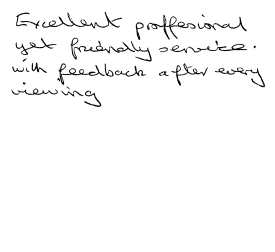 Excellent proffesional
yet friendly service.
with feedback after every
viewing